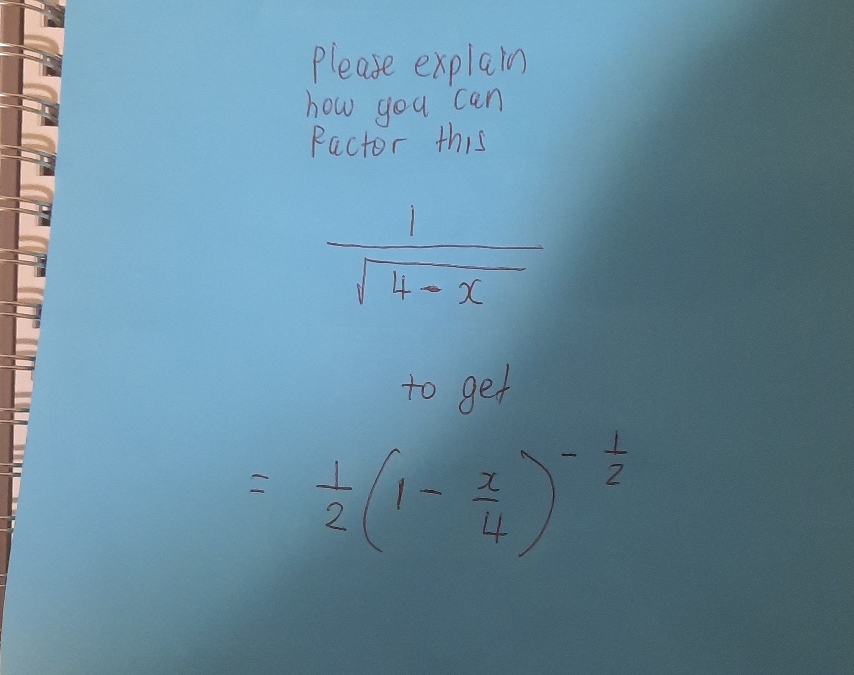 Please explain
how you can
factor this
1
√4 - x
to get
= 1/2 (1 - x/4)^- 1/2